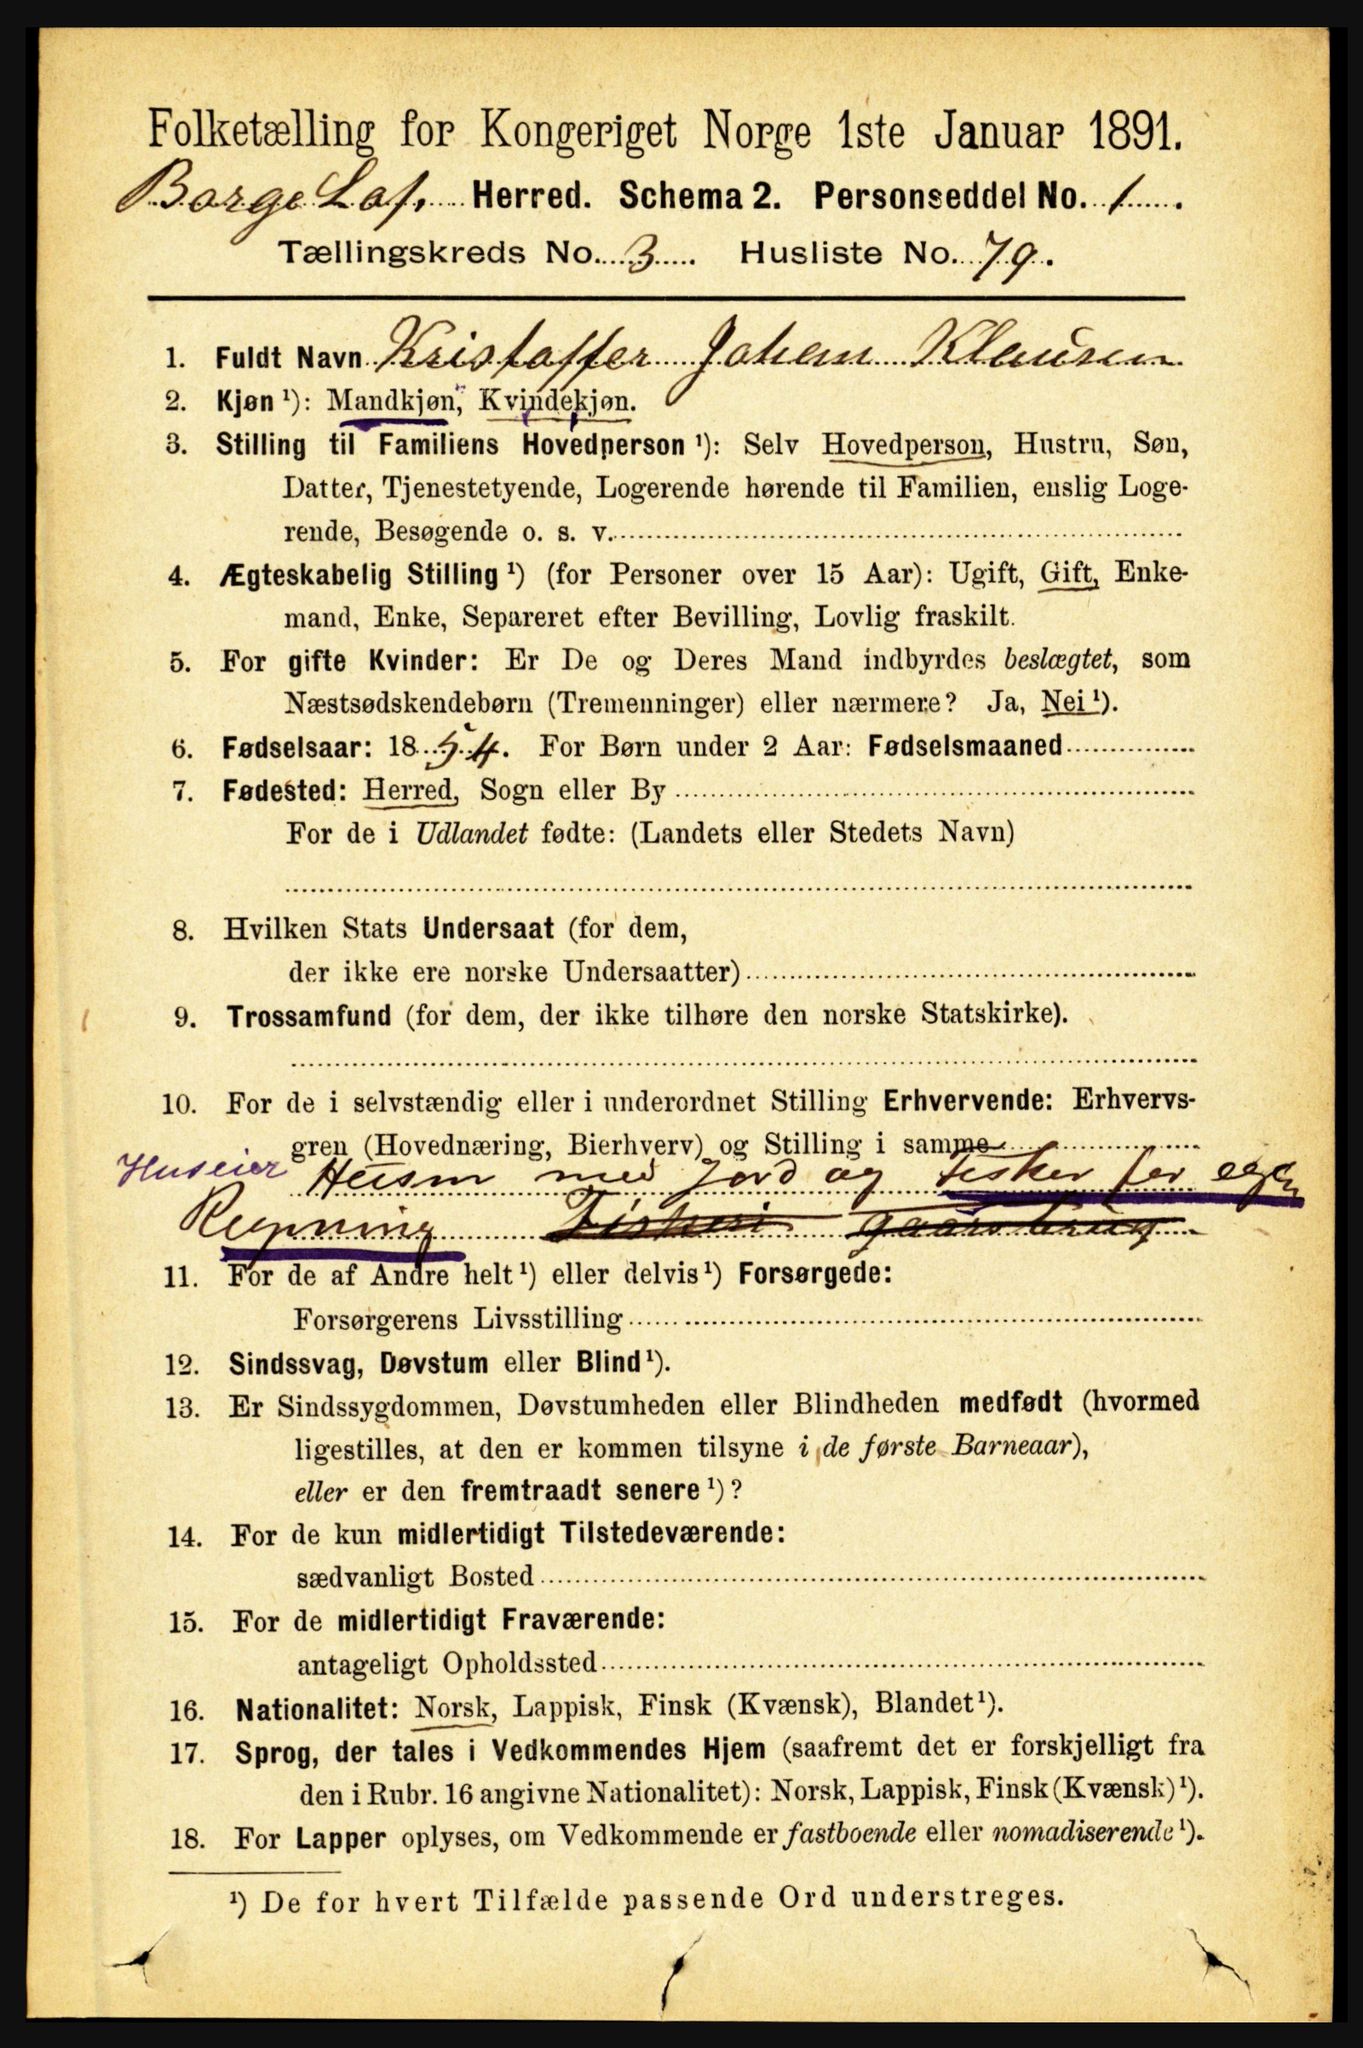 Folketælling for Kongeriget Norge 1ste Januar 1891.
Borge Lof. Herred. Schema 2. Personseddel No. 1.
Tællingskreds No. 3. Husliste No. 79.
1. Fuldt Navn Kristoffer Johan Klausen
2. Kjøn ¹): Mandkjøn, Kvindekjøn.
3. Stilling til Familiens Hovedperson ¹): Selv Hovedperson, Hustru, Søn,
Datter, Tjenestetyende, Logerende hørende til Familien, enslig Loge-
rende, Besøgende o. s. v.
4. Ægteskabelig Stilling ¹) (for Personer over 15 Aar): Ugift, Gift, Enke-
mand, Enke, Separeret efter Bevilling, Lovlig fraskilt.
5. For gifte Kvinder: Er De og Deres Mand indbyrdes beslægtet, som
Næstsødskendebørn (Tremenninger) eller nærmere? Ja, Nei ¹).
6. Fødselsaar: 1854. For Børn under 2 Aar: Fødselsmaaned
7. Fødested: Herred, Sogn eller By
For de i Udlandet fødte: (Landets eller Stedets Navn)
8. Hvilken Stats Undersaat (for dem,
der ikke ere norske Undersaatter)
9. Trossamfund (for dem, der ikke tilhøre den norske Statskirke).
10. For de i selvstændig eller i underordnet Stilling Erhvervende: Erhvervs-
gren (Hovednæring, Bierhverv) og Stilling i samme
Huseier med Jord og Fisker for egen
Regning Fiskeri gaardsbrug
11. For de af Andre helt ¹) eller delvis ¹) Forsørgede:
Forsørgerens Livsstilling
12. Sindssvag, Døvstum eller Blind ¹).
13. Er Sindssygdommen, Døvstumheden eller Blindheden medfødt (hvormed
ligestilles, at den er kommen tilsyne i de første Barneaar),
eller er den fremtraadt senere ¹)?
14. For de kun midlertidigt Tilstedeværende:
sædvanligt Bosted
15. For de midlertidigt Fraværende:
antageligt Opholdssted
16. Nationalitet: Norsk, Lappisk, Finsk (Kvænsk), Blandet ¹).
17. Sprog, der tales i Vedkommendes Hjem (saafremt det er forskjelligt fra
den i Rubr. 16 angivne Nationalitet): Norsk, Lappisk, Finsk (Kvænsk) ¹).
18. For Lapper oplyses, om Vedkommende er fastboende eller nomadiserende ¹).
¹) De for hvert Tilfælde passende Ord understreges.